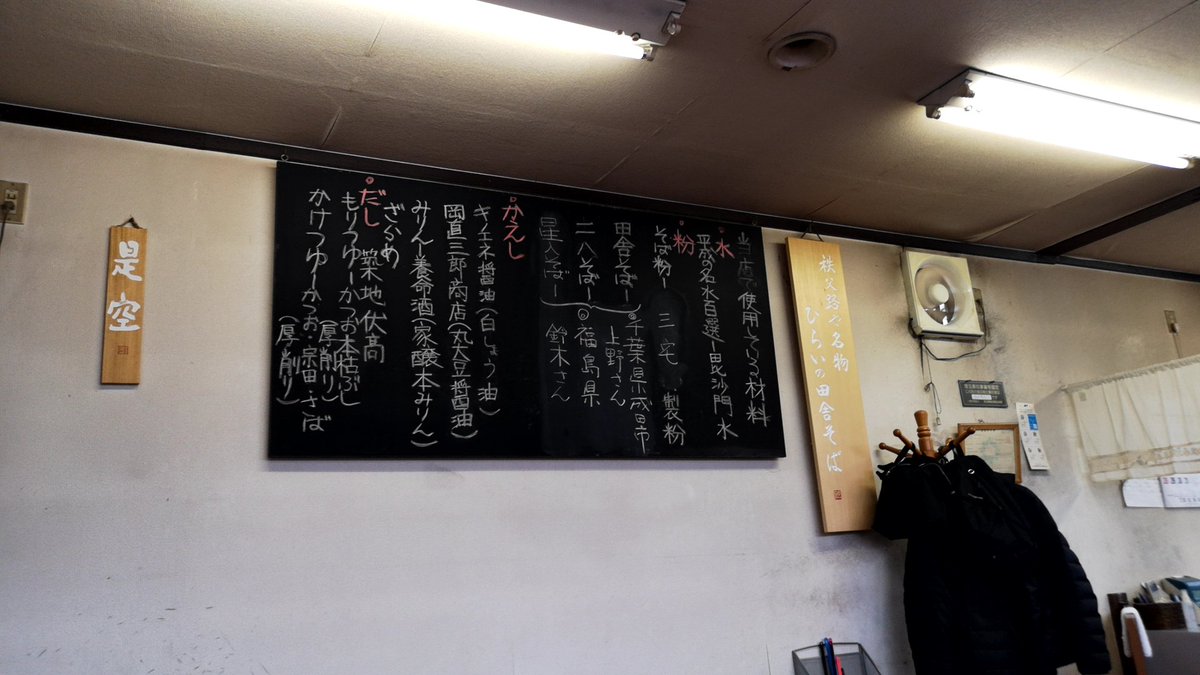 秩父路の名物
ひらいの田舎そば
当店で使用している材料
水
平成の名水百選ー毘沙門水
粉
そば粉ー三宅製粉
田舎そばー千葉県成田市
上野さん
二八そばー福島県
星空そばー鈴木さん
かえし
キノエネ醤油(白しょう油)
岡直三郎商店(丸大豆将醤油)
みりん養命酒(家醸本みりん)
ざらめ
だし 築地伏高
もりつゆーかつお本枯ぶし
(厚削り)
かけつゆーかつお・宗田・さば
(厚削り)
是空